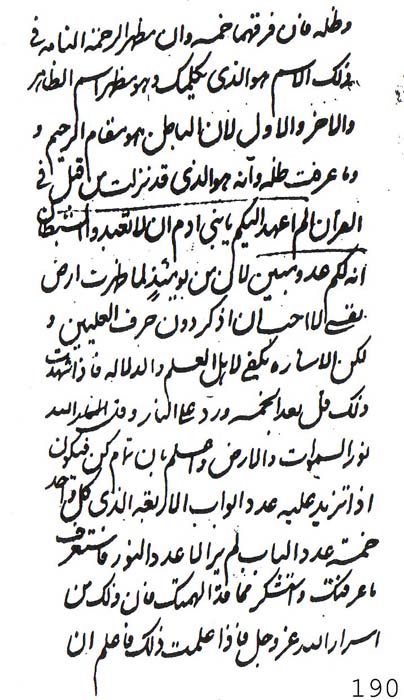 وظله فان فرقهما خمسه وان مظهر الرحمة التامه فى
ذلك الاسم هو الذى يكلمك وهو مظهر اسم الظاهر
والاخر والاول لان الباطن هو مقام الرحيم و
ما عرفت ظله وآنه هو الذى قد نزلت من قبل فى
القرآن الم اعهد اليكم يا بنى ادم ان لا تعبدوا الشيطان
انه لكم عدو مبين لان من يومئذ لما طهرت ارض
نفسى الا احب ان اذكر دون حرف العليين و
لكن الاشاره تكفى لاهل العلم والدلاله فاذا شهدت
ذلك قل بعد الخمسه ورد على النار وقل الله
نور السموات والارض واعلم بان تمام كن فيكون
اذا تزيد عليه عدد ابواب الاربعه الذى كل واحد
خمسة عدد الباب لم ير الا عدد النور فاستعرف
ما عرفتك واستشكر لهديتك فان ذلك من
اسرار الله عز وجل فاذا علمت ذلك فاعلم ان
190